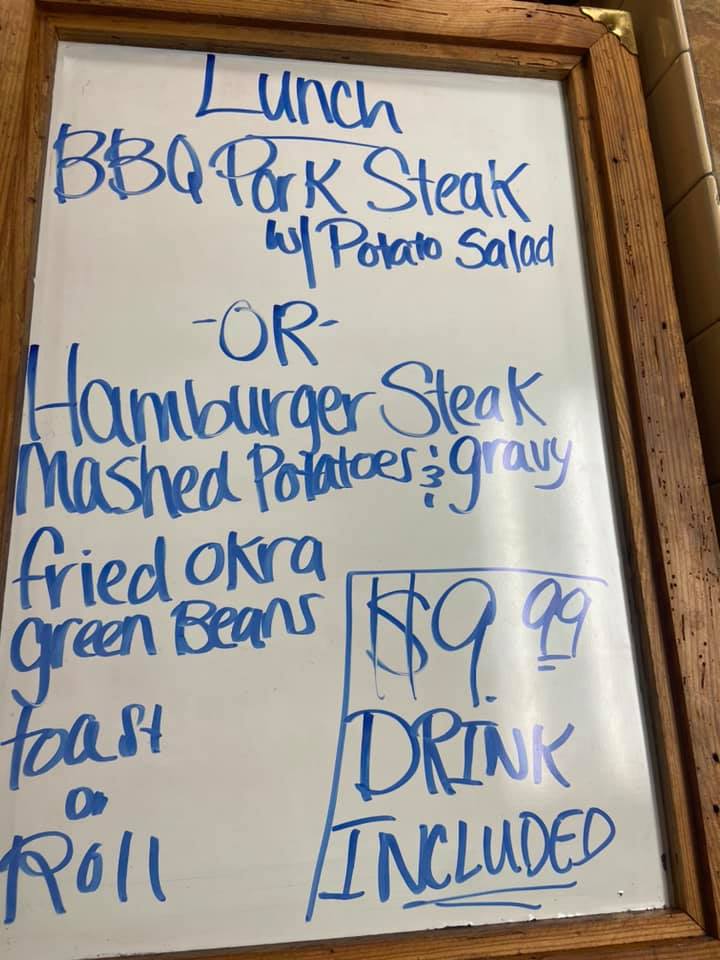 Lunch
BBQ Pork Steak
w/ Potato Salad
-OR-
Hamburger Steak
Mashed Potatoes & gravy
fried okra
green Beans
toast
or
Roll
$9.99
DRINK
INCLUDED